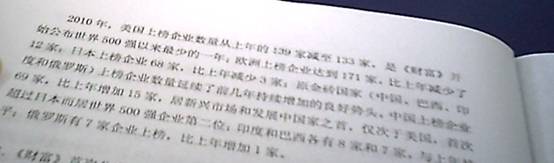 2010 年，美国上榜企业数量从上年的 139 家减至 133 家，是《财富》开
始公布世界 500 强以来最少的一年；欧洲上榜企业达到 171 家，比上年减少了
12 家；日本上榜企业 68 家，比上年减少 3 家；原金砖国家（中国、巴西、印
度和俄罗斯）上榜企业数量延续了前几年持续增加的良好势头，中国上榜企业
69 家，比上年增加 15 家，居新兴市场和发展中国家之首，仅次于美国，首次
超过日本而居世界 500 强企业第二位；印度和巴西各有 8 家和 7 家，与上年
平；俄罗斯有 7 家企业上榜，比上年增加 1 家。
《财富》首次